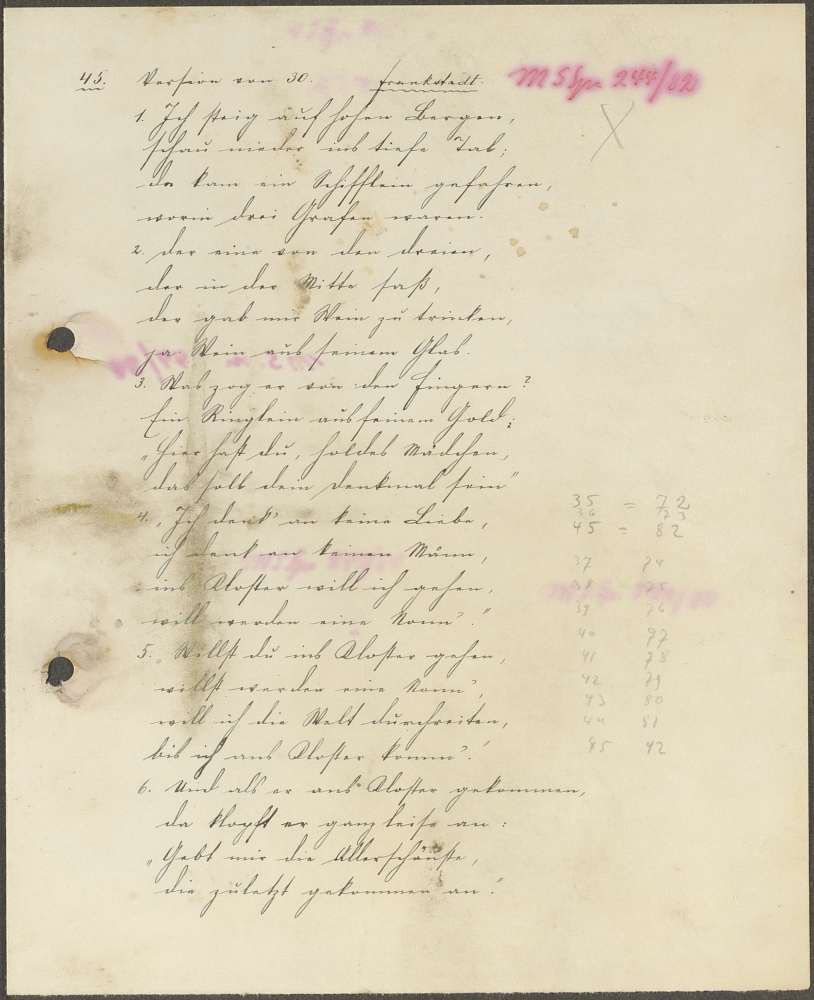 45. Version von 30. Frankstadt.
1. Ich steig auf hohen Bergen,
schau nieder ins tiefe Tal;
da kam ein Schifflein gefahren,
worin drei Grafen waren.
2. Der eine von den dreien,
der in der Mitte saß,
der gab mir Wein zu trinken,
ja Wein aus seinem Glas.
3. Was zog er von den Fingern?
Ein Ringlein aus feinem Gold;
"Hier hast du, holdes Mädchen,
das soll dein Denkmal sein"
4. "Ich denk' an keine Liebe,
ich denk an keinen Mann,
ins Kloster will ich gehen,
will werden eine Nonn'."
5. Willst du ins Kloster gehen,
willst werden eine Nonn',
will ich die Welt durchreiten,
bis ich ans Kloster komm'.
6. Und als er ans Kloster gekommen,
da klopft er ganz leise an:
"Gebt mir die Allerschönste,
die zuletzt gekommen an."
35 = 72
36 73
45 = 82
37 74
38 75
39 76
40 77
41 78
42 79
43 80
44 81